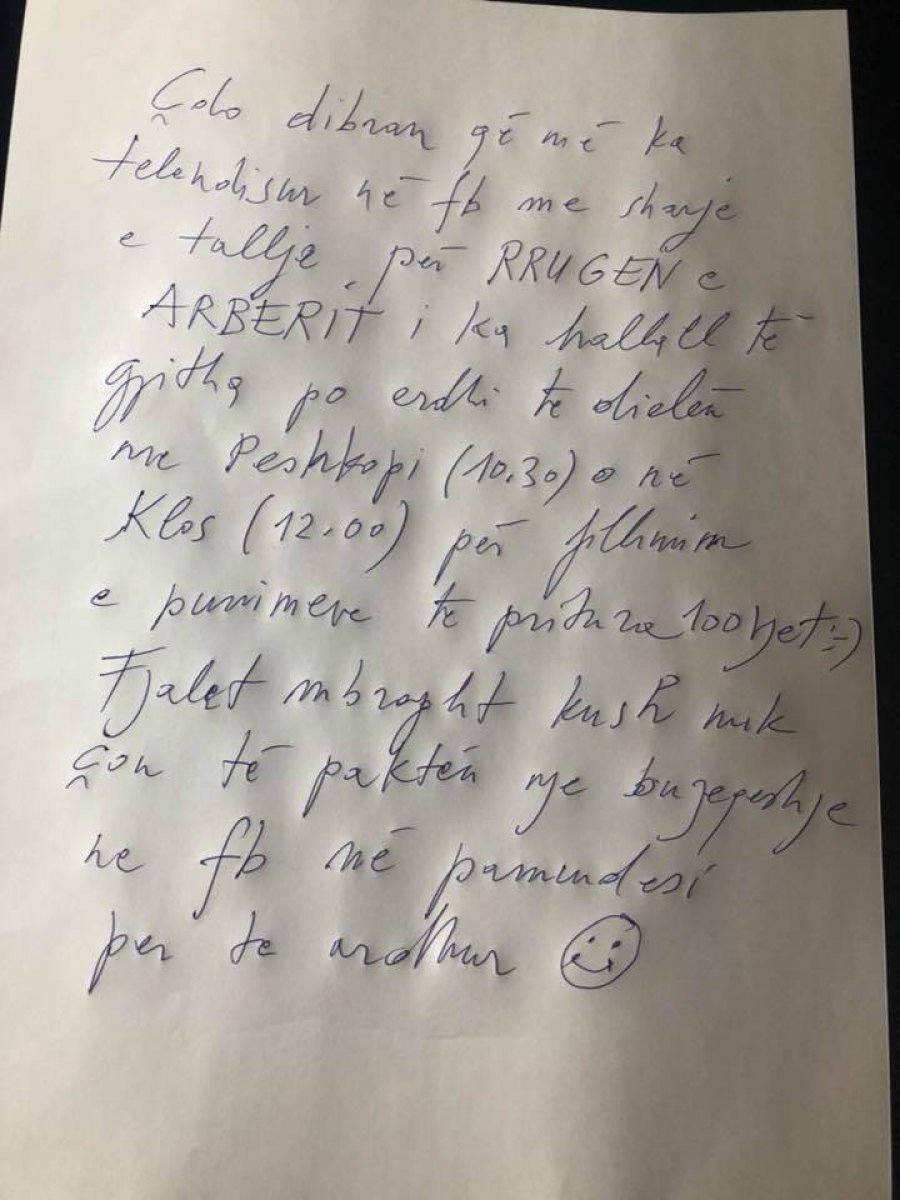 Çdo dibran që më ka
telendisur në fb me sharje
e tallje për RRUGEN e
ARBERIT i ka hallall të
gjitha po erdhi te dielën
me Peshkopi (10.30) o në
Klos (12.00) për fillimim
e punimeve te pritura 100vjet:-)
Fjalët mbrapsht kush nuk
çon të paktën nje buzeqeshje
ne fb në pamundesi
per te ardhur ☺